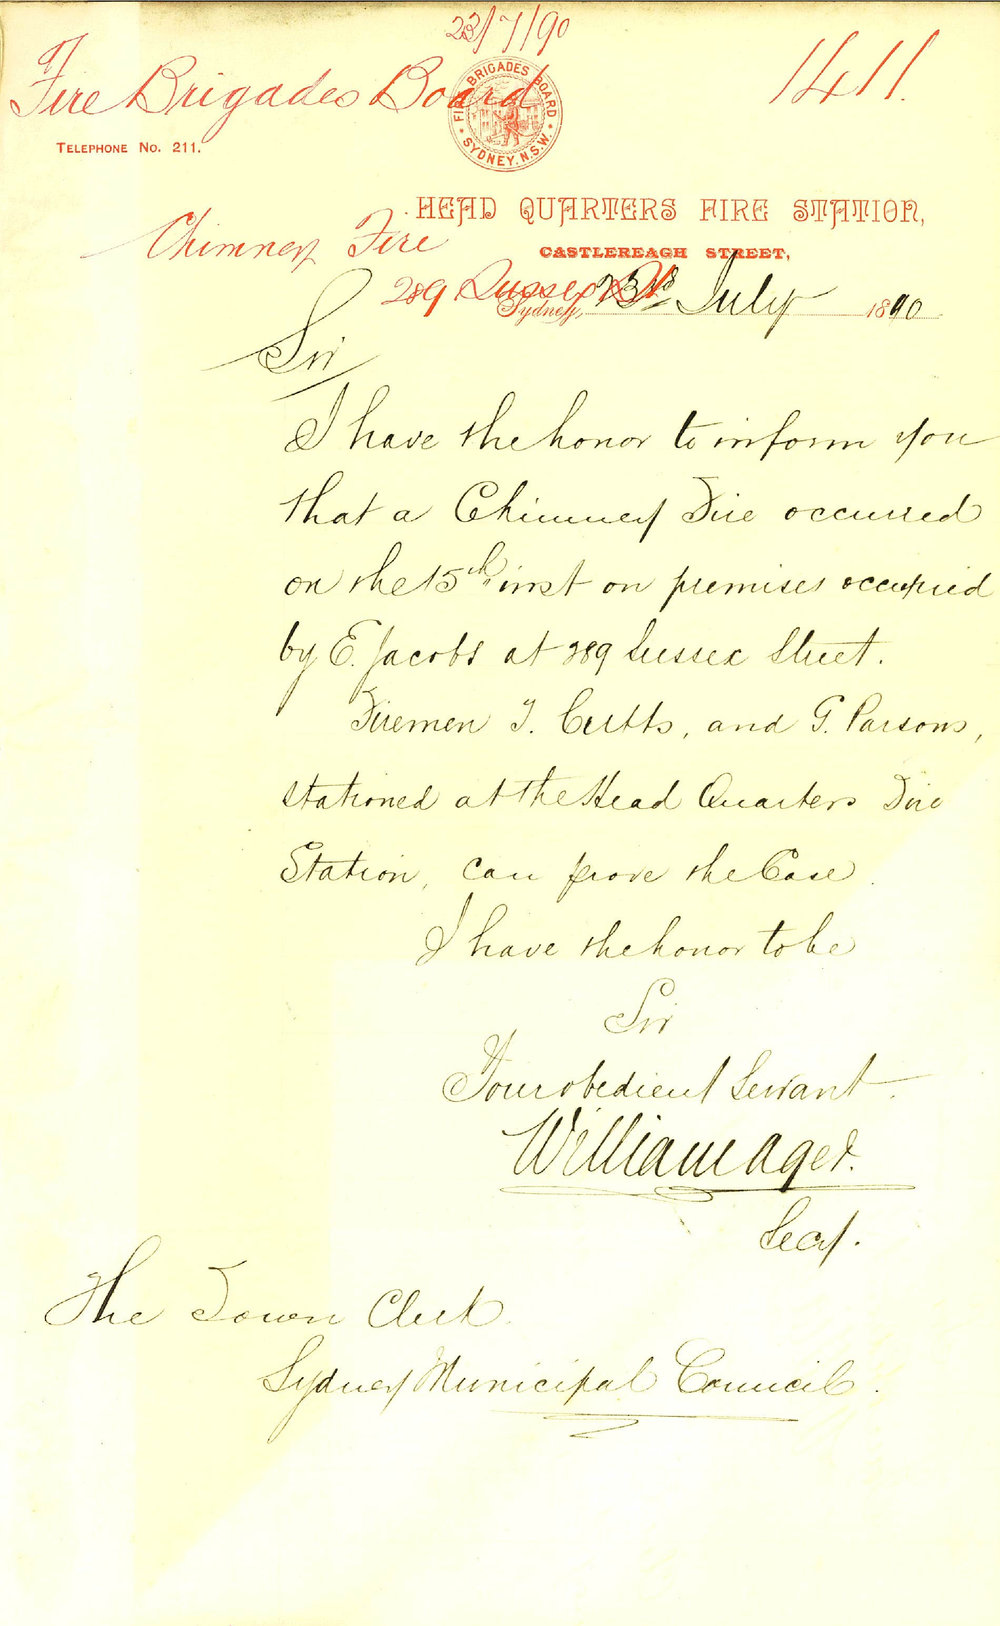 23/7/90
Fire Brigades Board
1411.
FIRE BRIGADES BOARD
SYDNEY. N.S.W.
TELEPHONE No. 211.
HEAD QUARTERS FIRE STATION,
CASTLEREAGH STREET,
Chimney Fire
289 Sussex St
Sydney, 23rd July 1890
Sir
I have the honor to inform you
that a Chimney Fire occurred
on the 15th inst on premises occupied
by E. Jacobs at 289 Sussex Street.
Firemen T. Cutts, and G. Parsons,
stationed at the Head Quarters Fire
Station, can prove the Case.
I have the honor to be
Sir
Your obedient Servant.
William ager.
Secy.
The Town Clerk.
Sydney Municipal Council.